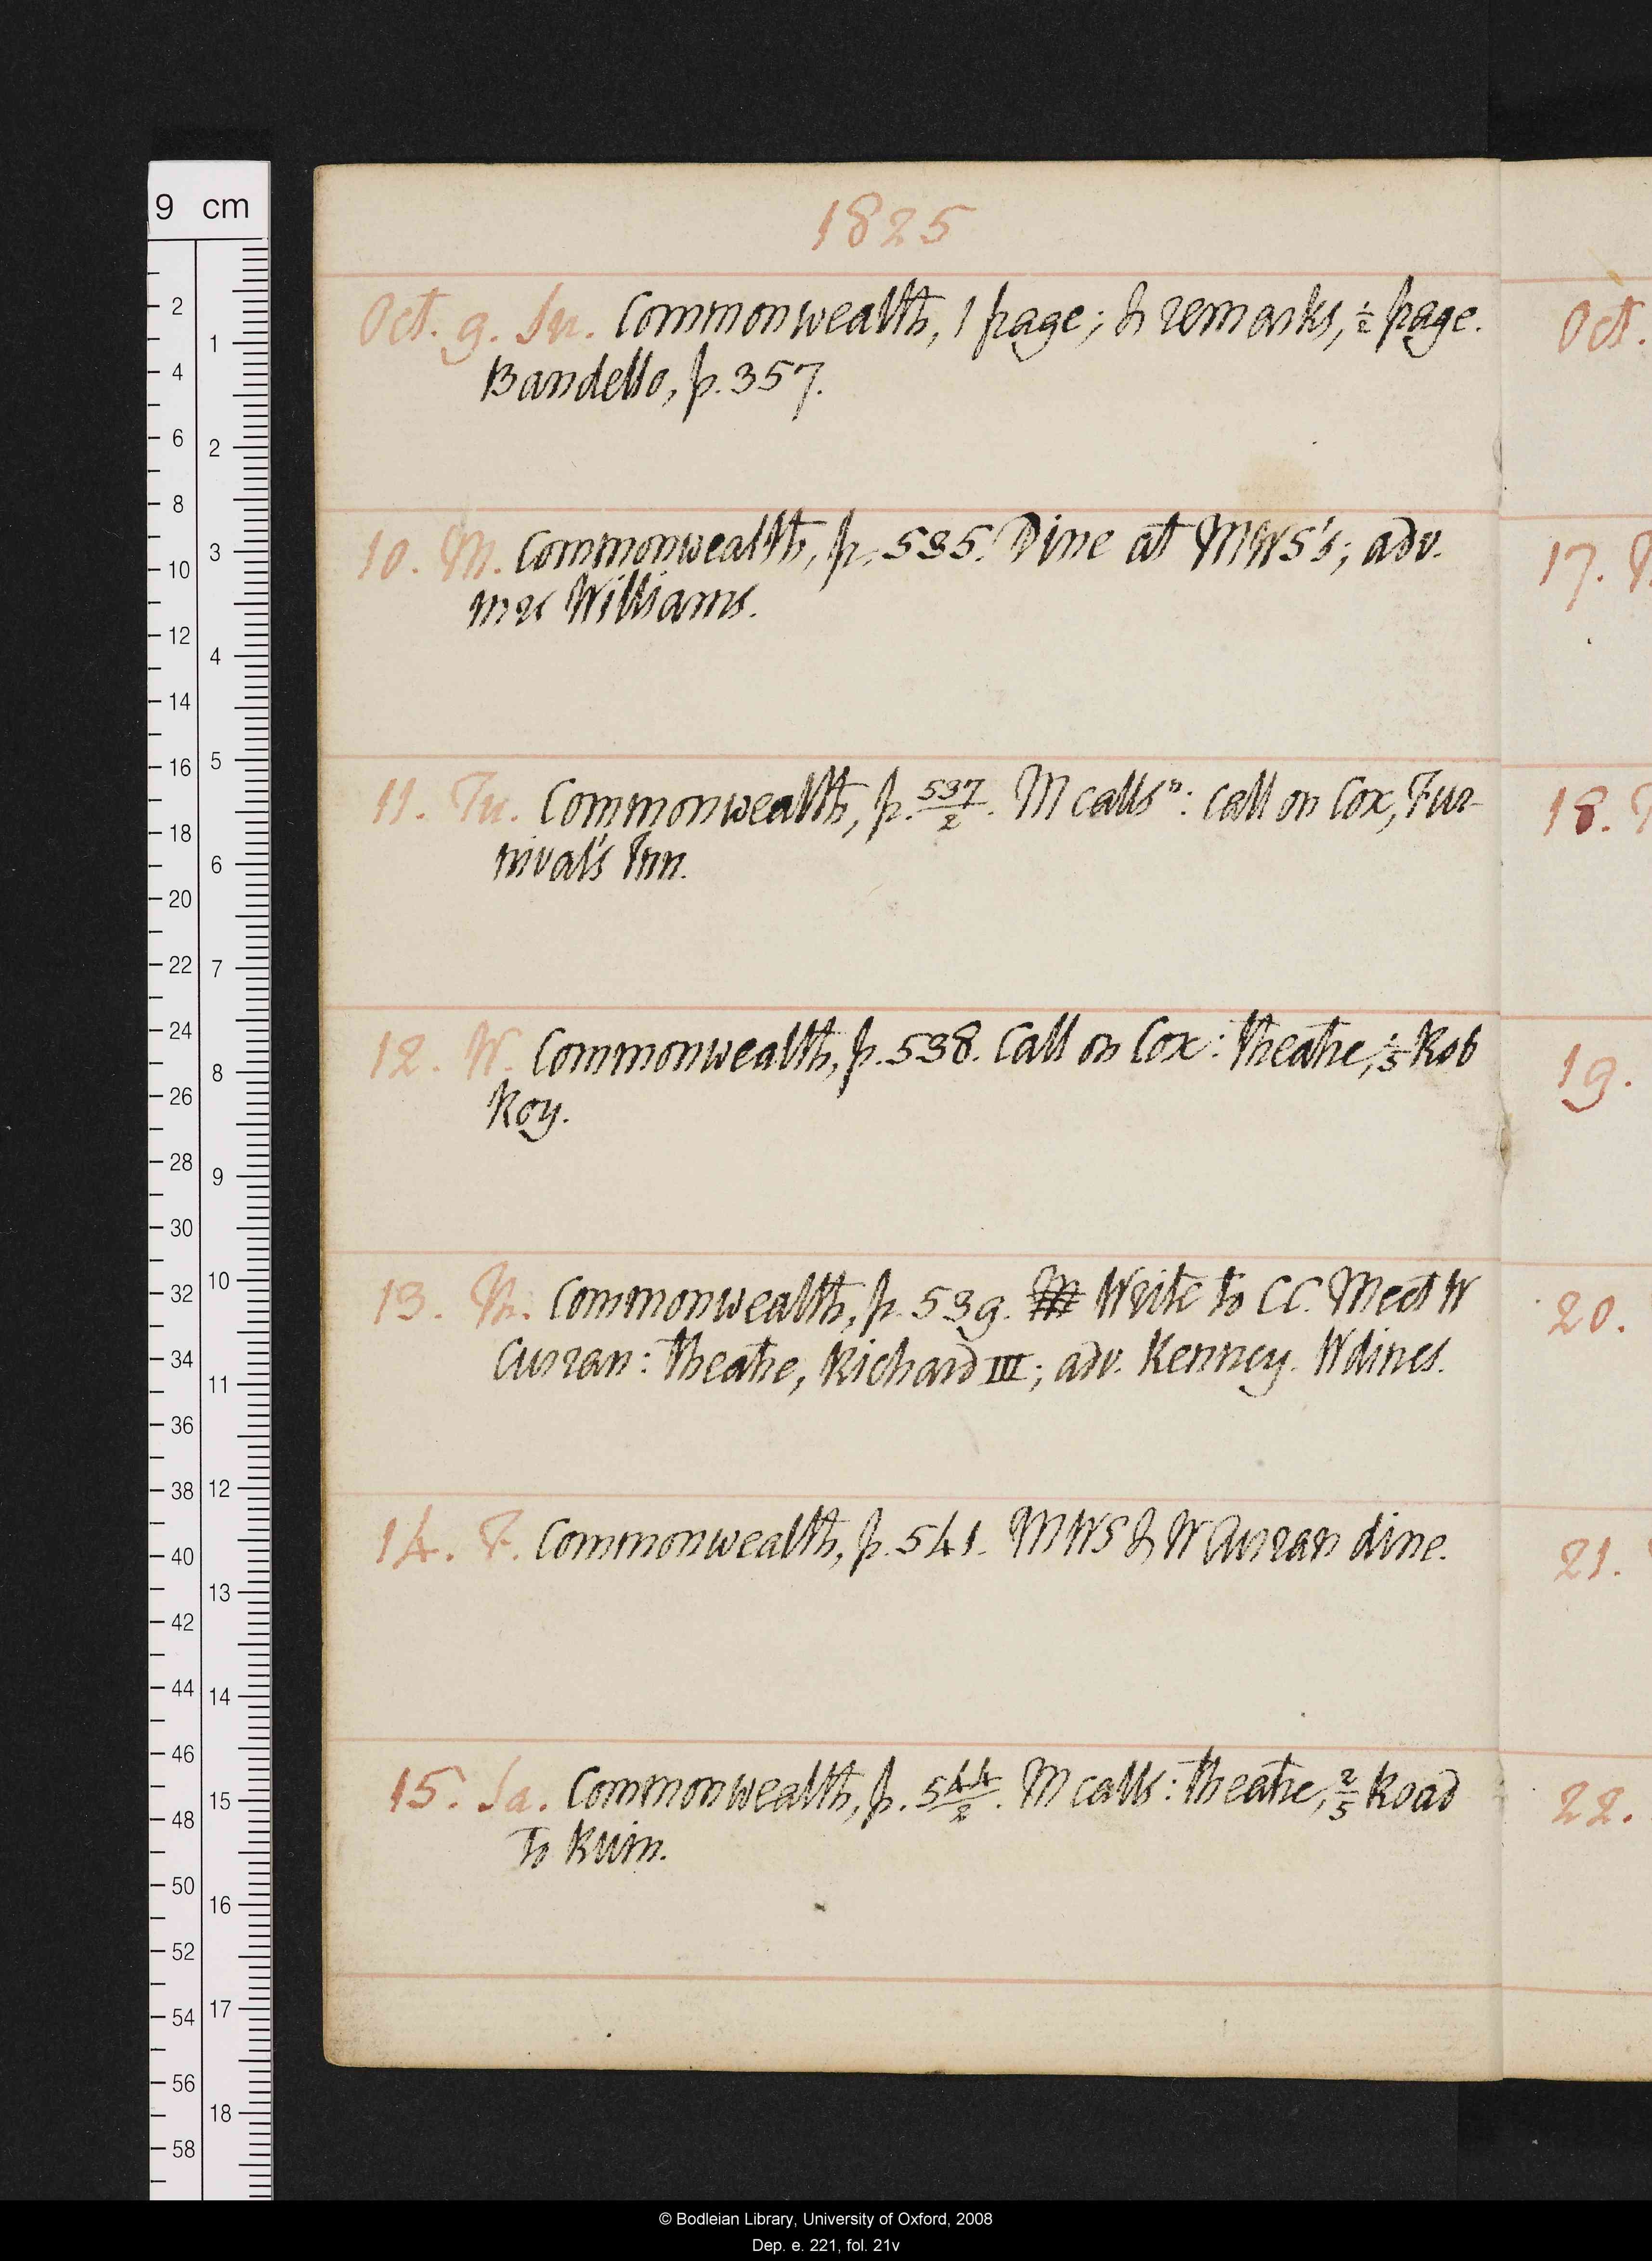 1825
Oct. 9. Su. Commonwealth, 1 page; & remarks, ½ page.
Bandello, p. 357.
10. M. Commonwealth, p. 535. Dine at MWS's; adv.
mrs Williams.
11. Tu. Commonwealth, p. 537/2. M calls n: call on Cox, Fur-
nival's Inn.
12. W. Commonwealth, p. 538. Call on Cox: theatre, Rob
Roy.
13. Th. Commonwealth, p. 539. Write to CC. Meet W
Curran: theatre, Richard III; adv. Kenney. W dines.
14. F. Commonwealth, p. 541. MWS & W Curran dine.
15. Sa. Commonwealth, p. 544/2. M calls: theatre, 2/5 Road
to Ruin.
Oct.
17.
18.
19.
20.
21.
22.
9 cm
2
4
6
8
10
12
14
16
18
20
22
24
26
28
30
32
34
36
38
40
42
44
46
48
50
52
54
56
58
1
2
3
4
5
6
7
8
9
10
11
12
13
14
15
16
17
18
© Bodleian Library, University of Oxford, 2008
Dep. e. 221, fol. 21v